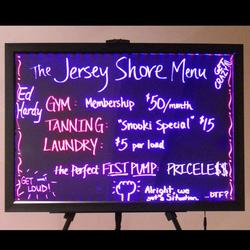 The Jersey Shore Menu
GET CRAZY!
Ed Hardy
GYM: Membership $50/month
TANNING: "Snooki Special" $15
LAUNDRY: $5 per load
the perfect FIST PUMP: PRICELE$$
GET LOUD!
Alright, we
got's Situation
DTF?